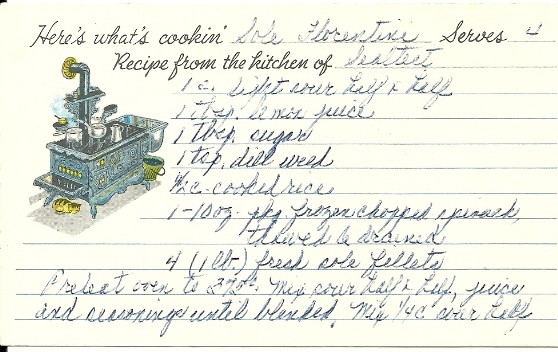 Here's what's cookin' Sole Florentine Serves 4
Recipe from the kitchen of Sealtest
1 c. light sour half & half
1 tbsp. lemon juice
1 tbsp. sugar
1 tsp. dill weed
1/2 c. cooked rice
1-10 oz. pkg frozen chopped spinach,
thawed & drained
4 (1 lb.) fresh sole fillets
Preheat oven to 375°. Mix sour half & half, juice
and seasonings until blended, Mix 1/4 c sour half